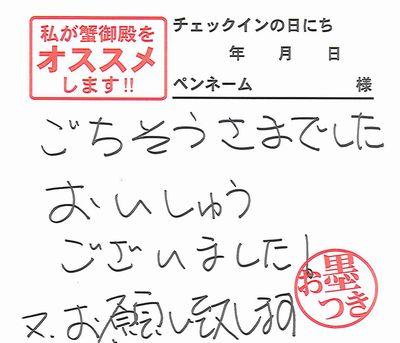 私が蟹御殿を
オススメ
します!!
チェックインの日にち
年 月 日
ペンネーム 様
ごちそうさまでした
おいしゅう
ございました!
又、お願い致します
お墨つき